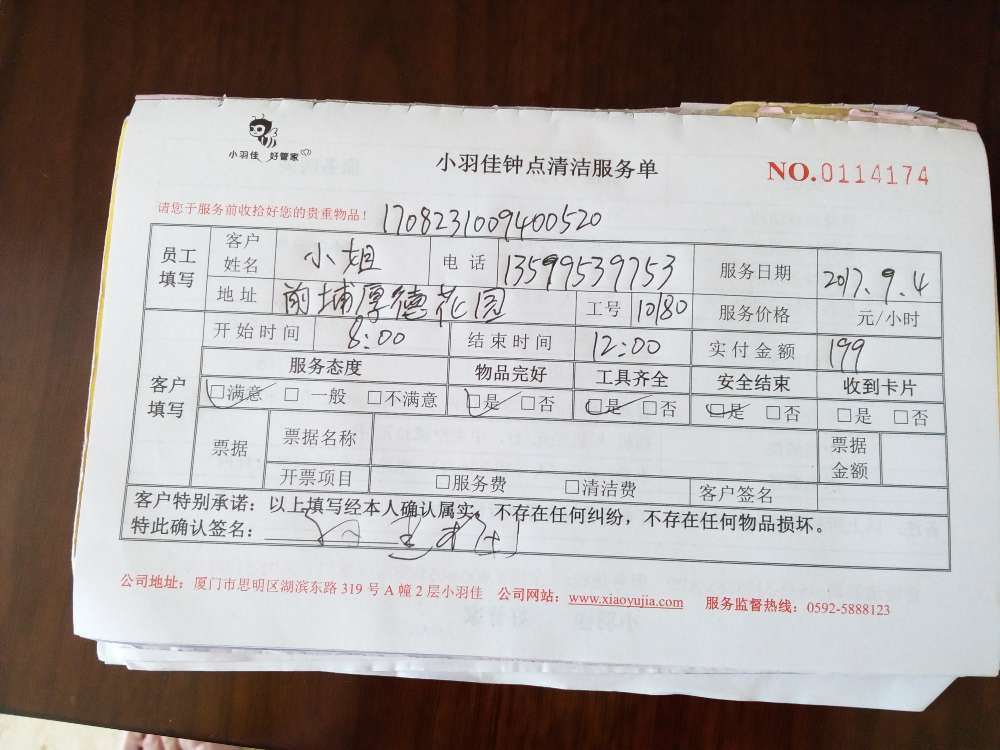 小羽佳 好管家
小羽佳钟点清洁服务单
NO.0114174
请您于服务前收拾好您的贵重物品！ 1708231009400520
员工填写 客户姓名 小姐 电话 13599539753 服务日期 2017.9.4
地址 前埔厚德花园 工号 10180 服务价格 元/小时
客户填写 开始时间 8:00 结束时间 12:00 实付金额 199
服务态度 物品完好 工具齐全 安全结束 收到卡片
☑满意 □一般 □不满意 ☑是 □否 ☑是 □否 ☑是 □否 □是 □否
票据 票据名称 票据金额
开票项目 □服务费 □清洁费 客户签名
客户特别承诺：以上填写经本人确认属实，不存在任何纠纷，不存在任何物品损坏。
特此确认签名：
公司地址：厦门市思明区湖滨东路 319 号 A 幢 2 层小羽佳 公司网站：www.xiaoyujia.com 服务监督热线：0592-5888123